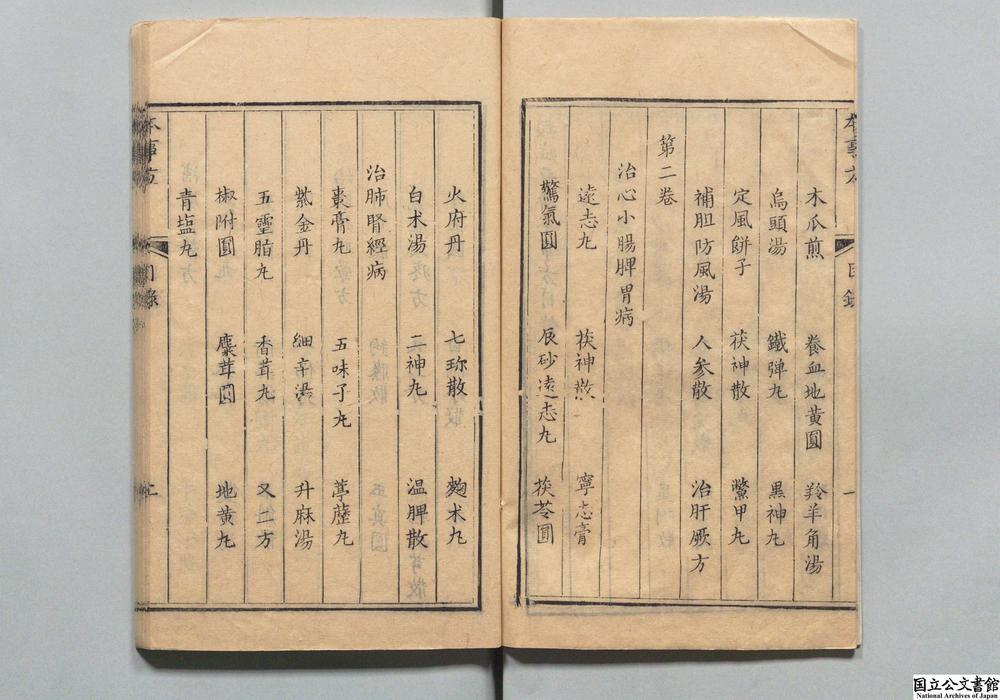 本事方 目錄 一
木瓜煎 養血地黄圓 羚羊角湯
烏頭湯 鐵弾丸 黒神丸
定風餅子 茯神散 鱉甲丸
補胆防風湯 人参散 治肝厥方
第二卷
治心小腸脾胃病
遠志丸 茯神散 寧志膏
驚氣圓 辰砂遠志丸 茯苓圓
火府丹 七珎散 麹术丸
白术湯 二神丸 温脾散
治肺腎經病
棗膏丸 五味子丸 葶藶丸
紫金丹 細辛湯 升麻湯
五靈脂丸 香茸丸 又二方
椒附圓 麋茸圓 地黄丸
青塩丸
本事方 目錄 二
国立公文書館
National Archives of Japan